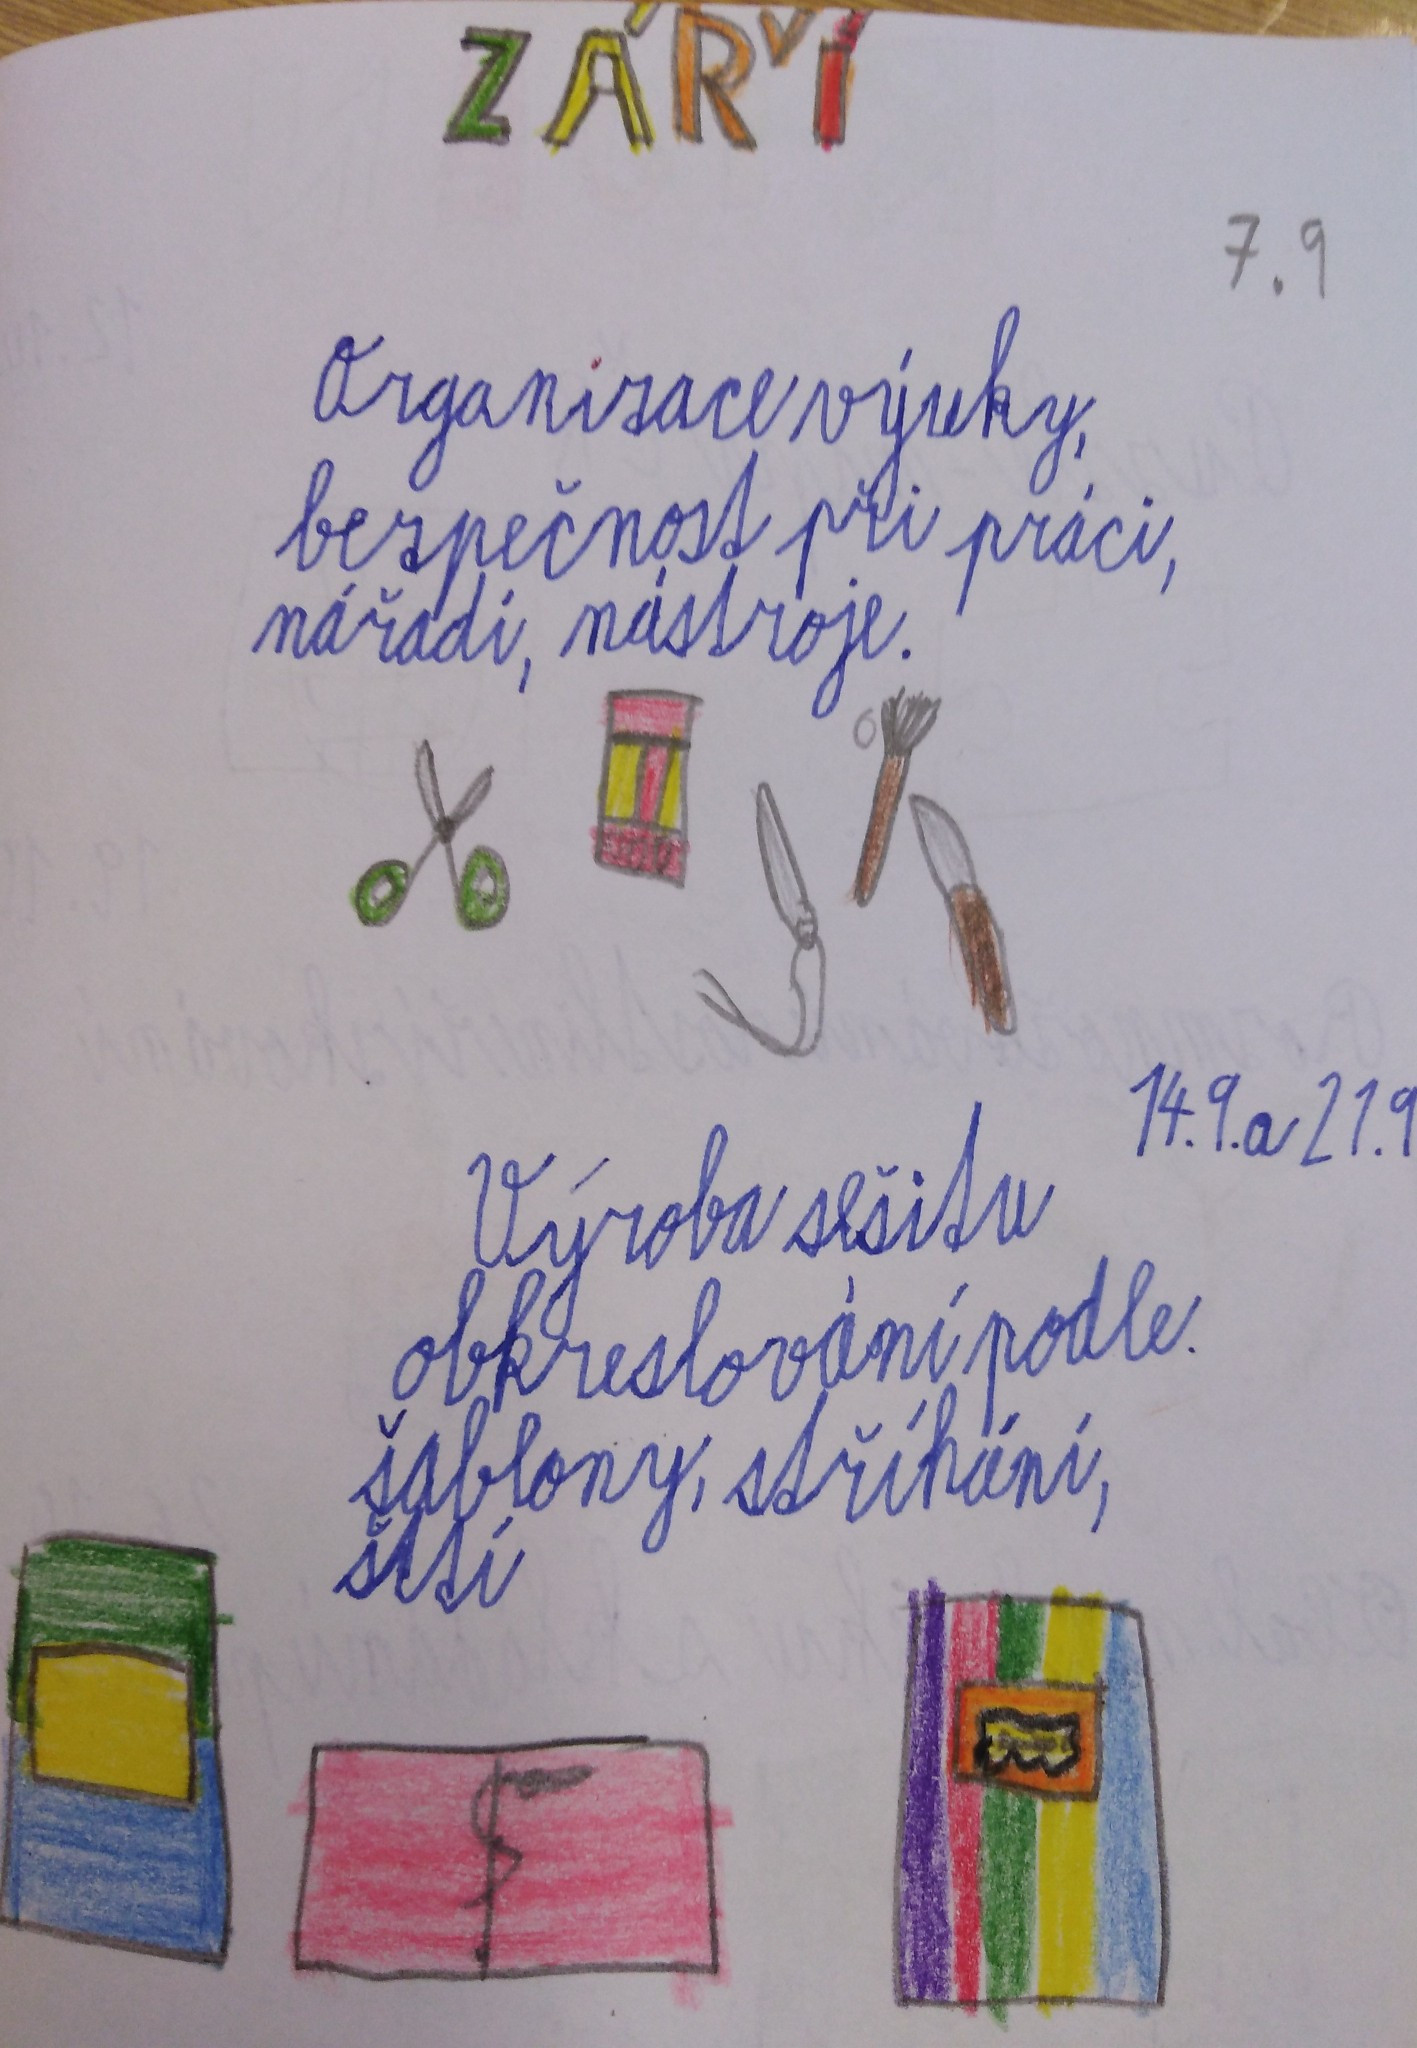 ZÁŘÍ
7.9
Organizace výuky,
bezpečnost při práci,
nářadí, nástroje.
14.9. a 21.9
Výroba sešitu
obkreslování podle.
šablony, stříhání,
šití